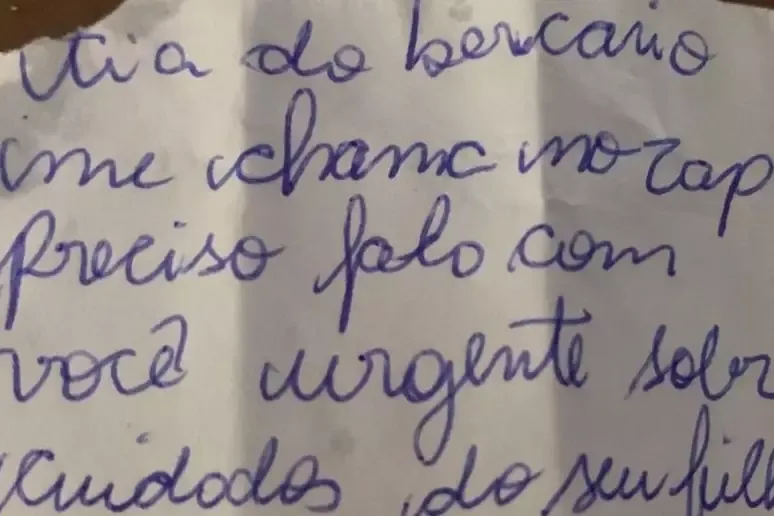 tia do bercario
me chama no zap
Preciso falo com
você urgente sobr
cuidados do seu fill